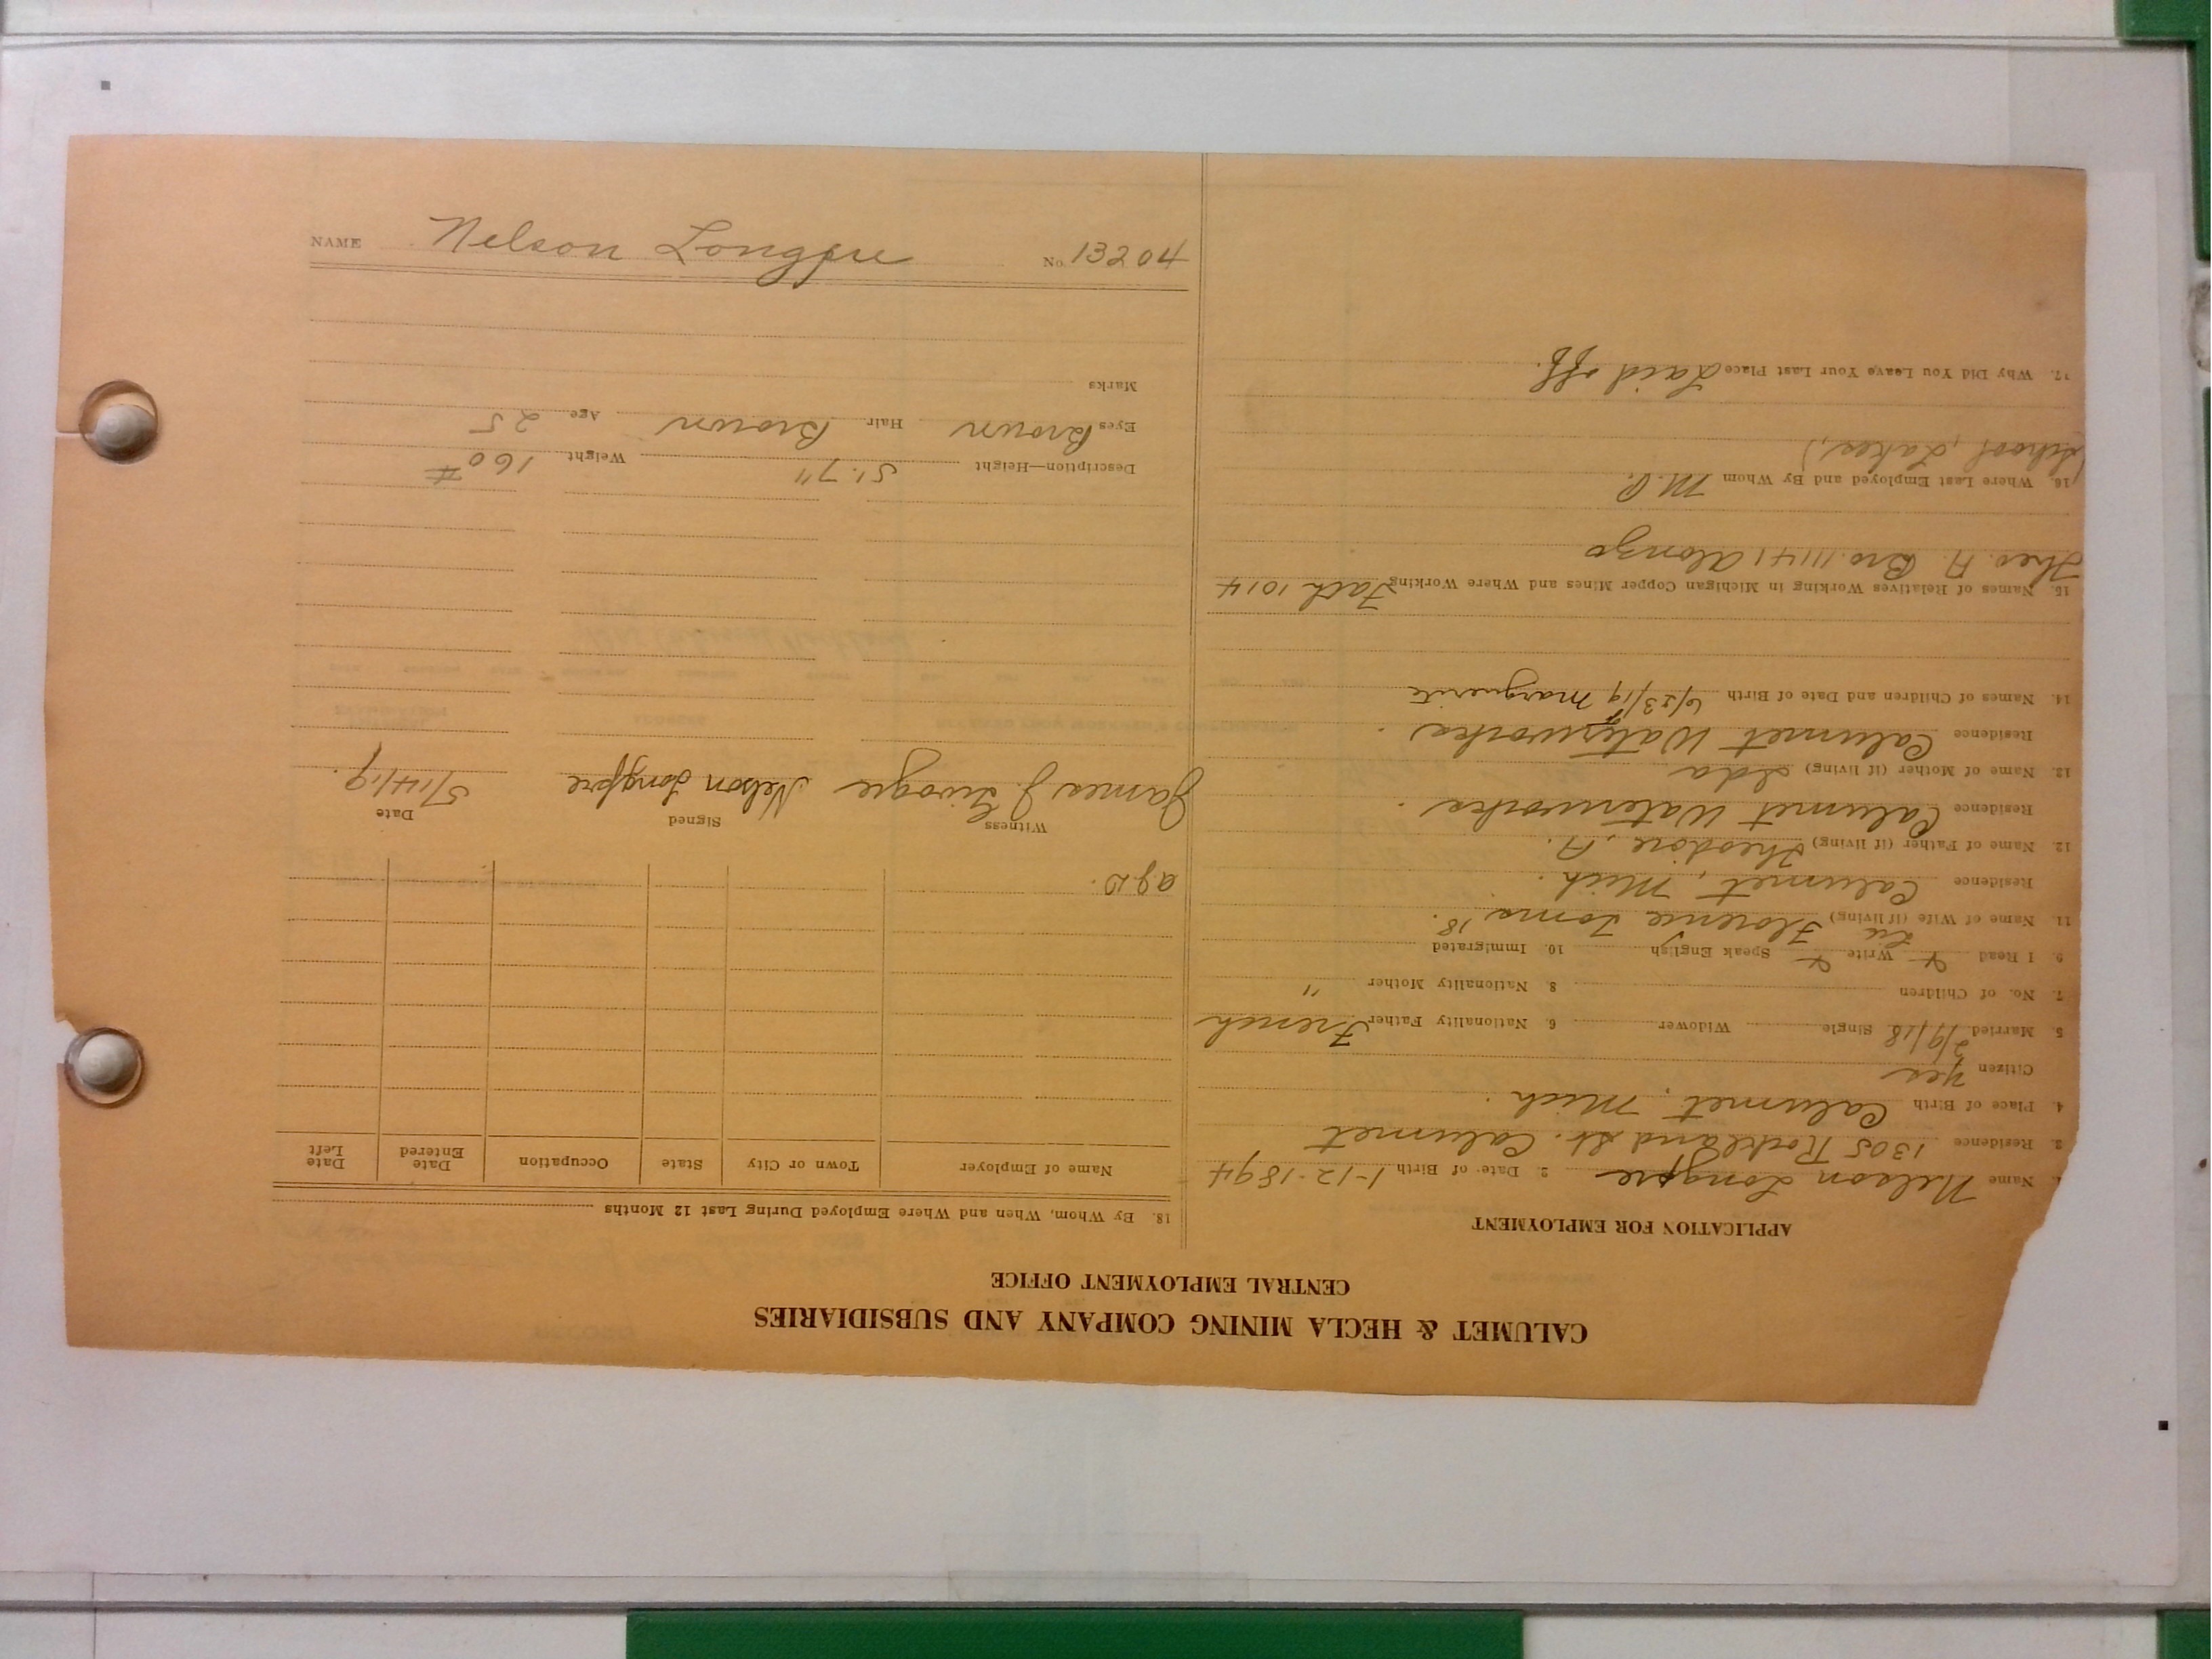 CALUMET & HECLA MINING COMPANY AND SUBSIDIARIES
CENTRAL EMPLOYMENT OFFICE
APPLICATION FOR EMPLOYMENT
1. Name Nelson Longpre 2. Date of Birth 1-12-1894
3. Residence 1305 Rockland St. Calumet
4. Place of Birth Calumet, Mich.
Citizen Yes
5. Married 2/9/18 Single Widower 6. Nationality Father French
7. No. of Children 8. Nationality Mother "
9. I Read Write Speak English 10. Immigrated
11. Name of Wife (if living) Florence 18.
Residence Calumet, Mich.
12. Name of Father (if living) Theodore, A.
Residence Calumet Waterworks.
13. Name of Mother (if living) Ida
Residence Calumet Waterworks.
14. Names of Children and Date of Birth 6/23/19 Marguerite
15. Names of Relatives Working in Michigan Copper Mines and Where Working Fath 1014
Theo. A. Bro. 11141 Alonzo
16. Where Last Employed and By Whom M.C.
(School, Lakes,)
17. Why Did You Leave Your Last Place Laid off.
18. By Whom, When and Where Employed During Last 12 Months
Name of Employer Town or City State Occupation Date Entered Date Left
Witness Signed Date
James J. Nelson Longpre 5/14/19.
Description—Height 5'. 7" Weight 160#
Eyes Brown Hair Brown Age 25
Marks
NAME Nelson Longpre No. 13204